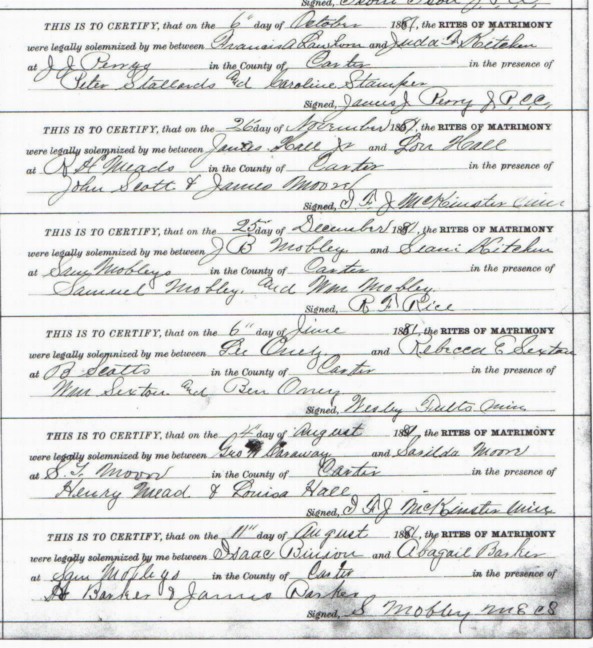 Signed,
THIS IS TO CERTIFY, that on the 6" day of October 1881, the RITES OF MATRIMONY
were legally solemnized by me between Francis A Lawhorn and Judda F Kitchen
at J J Perrys in the County of Carter in the presence of
Peter Stallards and Caroline Stamper
Signed, James J. Perry J P C C,
THIS IS TO CERTIFY, that on the 26 day of November 1881, the RITES OF MATRIMONY
were legally solemnized by me between James Hall Jr and Lou Hall
at R H Meads in the County of Carter in the presence of
John Scott & James Moon
Signed, I. F. J McKinster Min
THIS IS TO CERTIFY, that on the 25 day of December 1881, the RITES OF MATRIMONY
were legally solemnized by me between J B Mobley and Kitchen
at Sam Mobleys in the County of Carter in the presence of
Samuel Mobley. and Wm Mobley.
Signed, R F Rice
THIS IS TO CERTIFY, that on the 6" day of June 1881, the RITES OF MATRIMONY
were legally solemnized by me between and Rebecca E Sexton
at B Scotts in the County of Carter in the presence of
Wm Sexton and Ben Oney
Signed, Wesley Min
THIS IS TO CERTIFY, that on the 4" day of August 1881, the RITES OF MATRIMONY
were legally solemnized by me between Geo W Caraway and Sarilda Moon
at S. F. Moon in the County of Carter in the presence of
Henry Mead & Louisa Hall
Signed, I F J McKinster Min
THIS IS TO CERTIFY, that on the 11" day of August 1881, the RITES OF MATRIMONY
were legally solemnized by me between Isaac Binion and Abagail Barker
at Sam Mobleys in the County of Carter in the presence of
Barker & James Barker
Signed, S Mobley M E C S